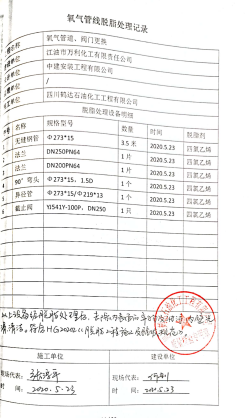 氧气管线脱脂处理记录
氧气管道、阀门更换
江油市万利化工有限责任公司
中建安装工程有限公司
/
四川鹤达石油化工工程有限公司
脱脂处理设备明细
名称 规格型号 数量 时间 脱脂剂
无缝钢管 Φ273*15 3.5米 2020.5.23 四氯乙烯
法兰 DN250PN64 1片 2020.5.23 四氯乙烯
法兰 DN200PN64 1片 2020.5.23 四氯乙烯
90°弯头 Φ273*15、1.5D 1个 2020.5.23 四氯乙烯
异径管 Φ273*15/Φ219*13 1个 2020.5.23 四氯乙烯
截止阀 YJ541Y-100P、DN250 1只 2020.5.23 四氯乙烯
以上设备经脱脂处理后
符合HG20202《脱脂工程施工及验收规范》
施工单位 建设单位
现场代表: 现场代表:
时间: 2020.5.23 时间: 2020.5.23